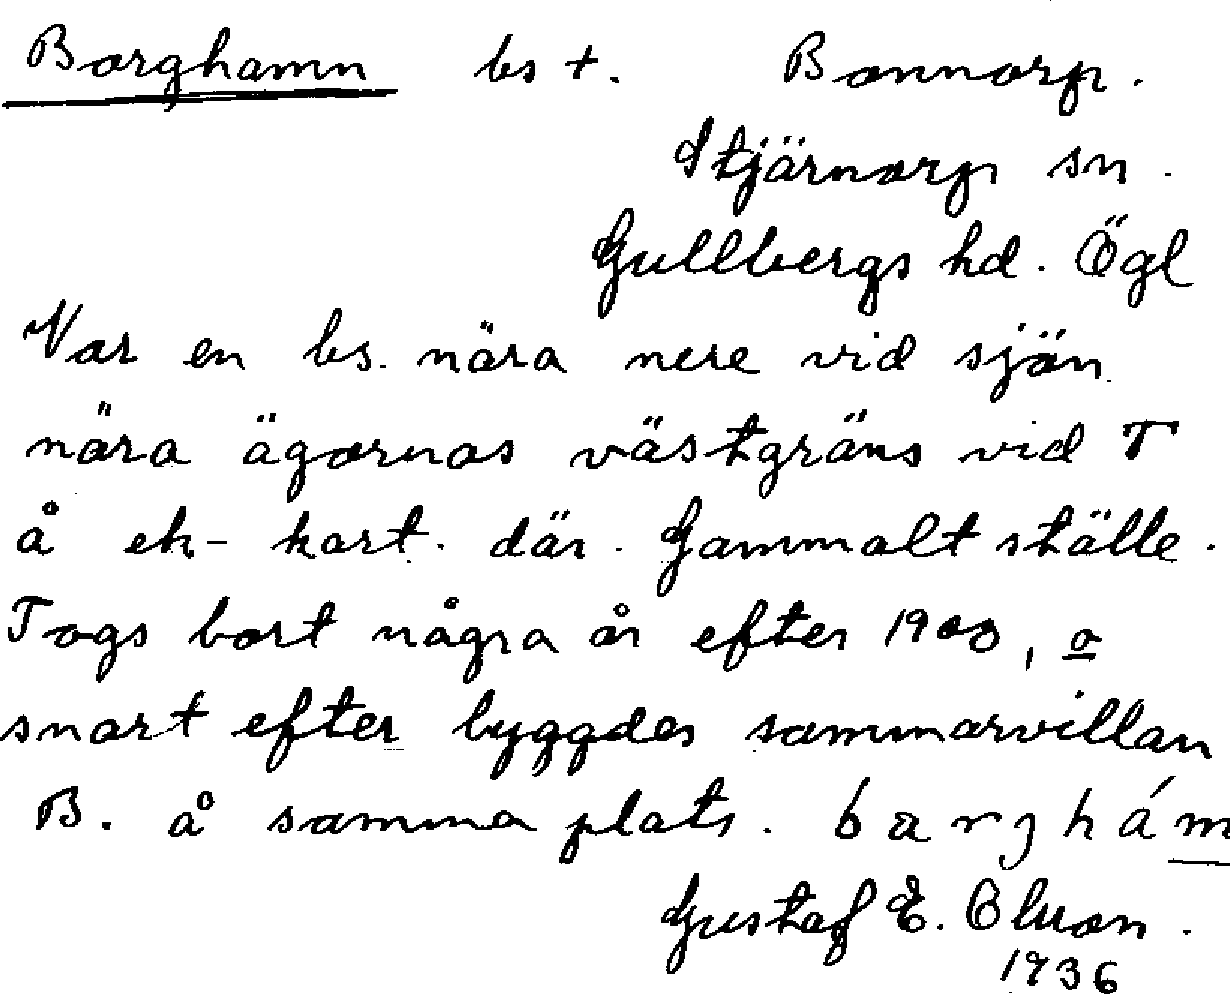 Borghamn bs +. Bonnorp.
Stjärnorp sn.
Gullbergs hd. Ögl
Var en bs. nära nere vid sjön
nära ägornas västgräns vid T
å ek-kart. där. Gammalt ställe.
Togs bort några år efter 1900, o
snart efter byggdes sommarvillan
B. å samma plats. bargham
Gustaf E. Olson.
1936